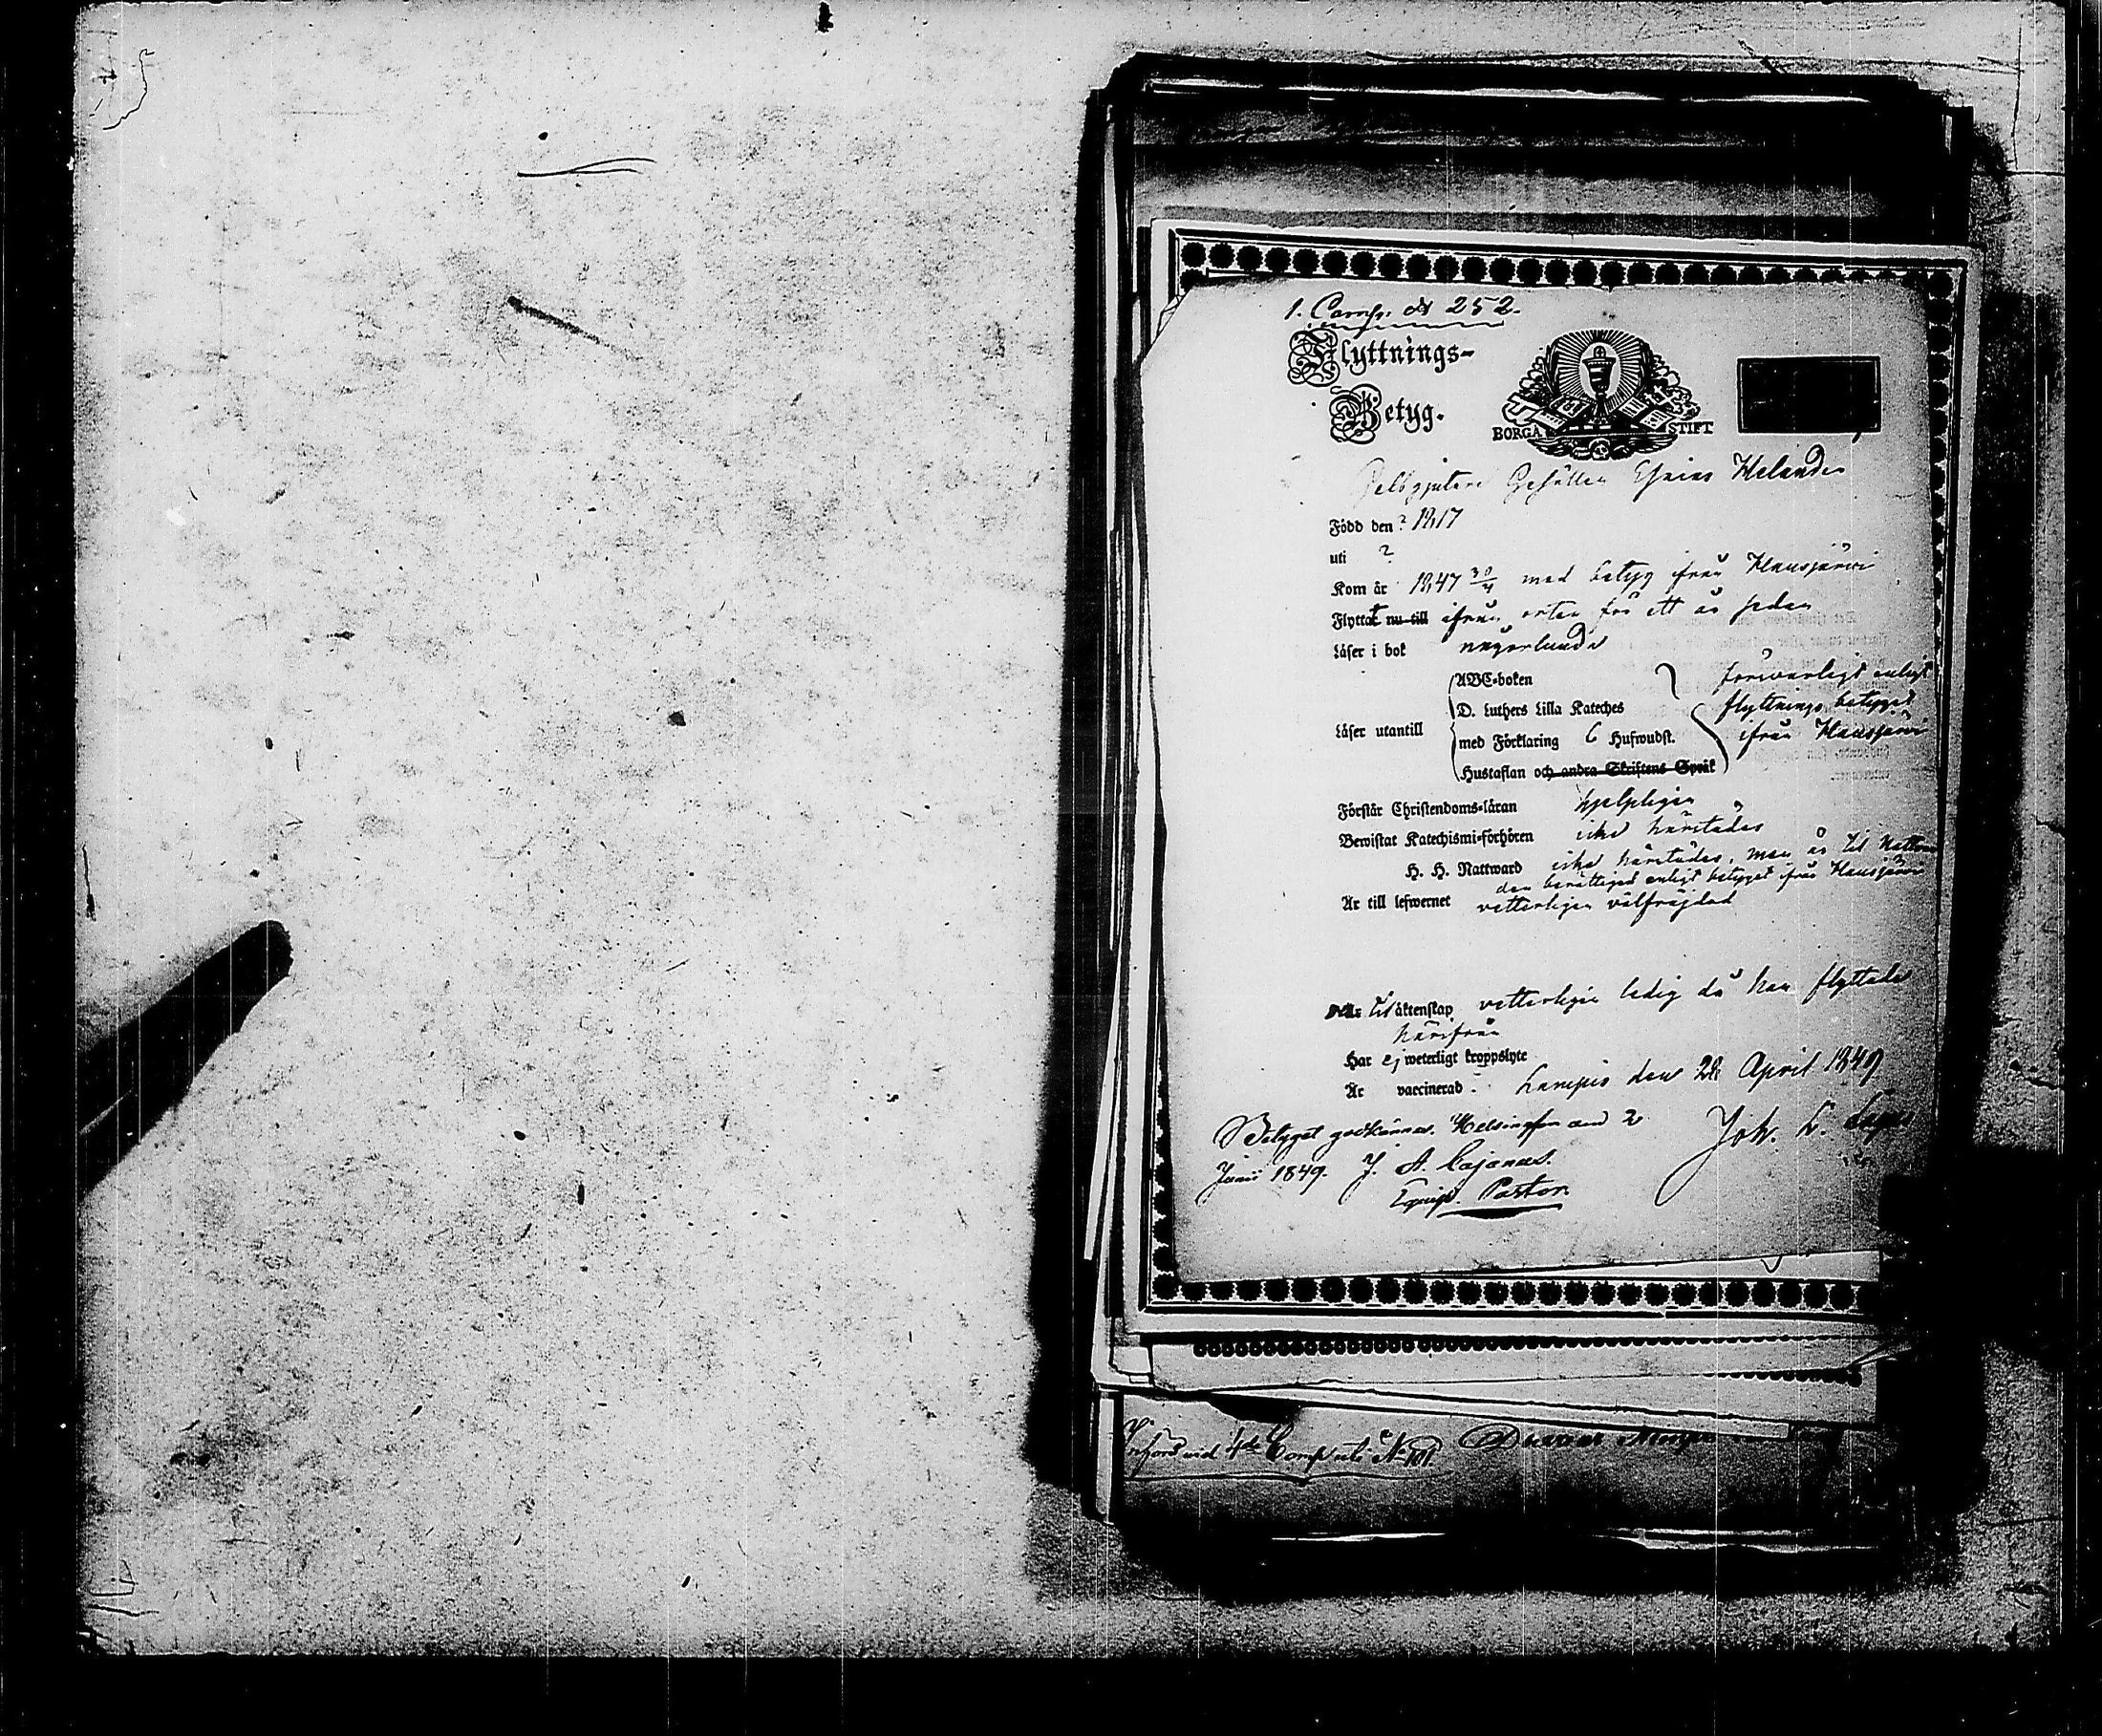 1. Comp. № 252.
Flyttnings-
Betyg.
BORGÅ STIFT
Gelbgjutare Gesällen Helander
Född den ? 1817
uti ?
Kom år 1847 30/4 med betyg ifrån Hausjärvi
Flyttat nu till ifrån orten för ett år sedan
Läser i bok någorlunda
Läser utantill
ABC-boken
D. Luthers Lilla Kateches
med Förklaring 6 Hufwudst.
Hustaflan och andra Skriftens Språk
försvarligt enligt
flyttnings betyget
ifrån Hausjärvi
Förstår Christendoms-läran hjelpligen
Bewistat Katechismi-förhören icke härstädes
H. H. Nattward icke härstädes, men är til Nattvar
den berättigad enligt betyget ifrån Hausjärvi
Är till lefwernet vetterligen välfräjdad
Til äktenskap vetterligen ledig då han flyttade
härifrån
Har ej weterligt kroppslyte
Är vaccinerad. Lampis den 28 April 1849
Joh. L.
Betyget godkännes. Helsingfors den 2
Junii 1849. J. A. Cajanus.
Equip. Pastor.
Införd vid 4de Comp. uti № 101.